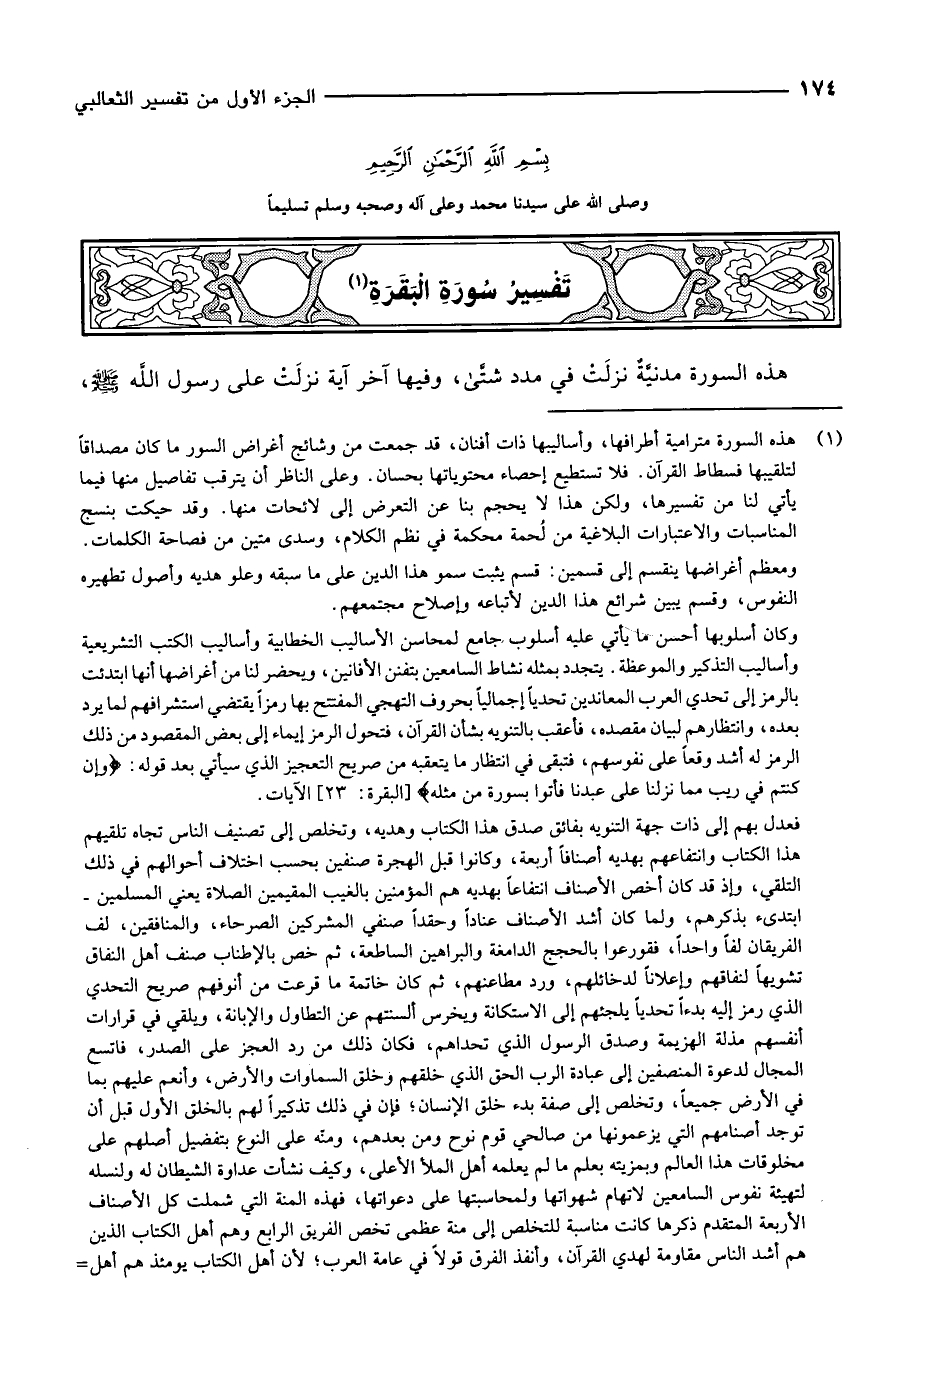 ١٧٤ الجزء الأول من تفسير الثعالبي
بِسْمِ ٱللَّهِ ٱلرَّحْمَٰنِ ٱلرَّحِيمِ
وصلى الله على سيدنا محمد وعلى آله وصحبه وسلم تسليماً
تَفْسِيرُ سُورَةِ الْبَقَرَةِ(١)
هذه السورة مدنيَّةٌ نزلَتْ في مدد شتَّى، وفيها آخر آية نزلَتْ على رسول اللَّه ﷺ،
(١) هذه السورة مترامية أطرافها، وأساليبها ذات أفنان، قد جمعت من وشائج أغراض السور ما كان مصداقاً
لتلقيبها فسطاط القرآن. فلا تستطيع إحصاء محتوياتها بحسان. وعلى الناظر أن يترقب تفاصيل منها فيما
يأتي لنا من تفسيرها، ولكن هذا لا يحجم بنا عن التعرض إلى لائحات منها. وقد حيكت بنسج
المناسبات والاعتبارات البلاغية من لُحمة محكمة في نظم الكلام، وسدى متين من فصاحة الكلمات.
ومعظم أغراضها ينقسم إلى قسمين: قسم يثبت سمو هذا الدين على ما سبقه وعلو هديه وأصول تطهيره
النفوس، وقسم يبين شرائع هذا الدين لأتباعه وإصلاح مجتمعهم.
وكان أسلوبها أحسن ما يأتي عليه أسلوب جامع لمحاسن الأساليب الخطابية وأساليب الكتب التشريعية
وأساليب التذكير والموعظة. يتجدد بمثله نشاط السامعين بتفنن الأفانين، ويحضر لنا من أغراضها أنها ابتدئت
بالرمز إلى تحدي العرب المعاندين تحدياً إجمالياً بحروف التهجي المفتتح بها رمزاً يقتضي استشرافهم لما يرد
بعده، وانتظارهم لبيان مقصده، فأعقب بالتنويه بشأن القرآن، فتحول الرمز إيماء إلى بعض المقصود من ذلك
الرمز له أشد وقعاً على نفوسهم، فتبقى في انتظار ما يتعقبه من صريح التعجيز الذي سيأتي بعد قوله: ﴿وإن
كنتم في ريب مما نزلنا على عبدنا فأتوا بسورة من مثله﴾ [البقرة: ٢٣] الآيات.
فعدل بهم إلى ذات جهة التنويه بفائق صدق هذا الكتاب وهديه، وتخلص إلى تصنيف الناس تجاه تلقيهم
هذا الكتاب وانتفاعهم بهديه أصنافاً أربعة، وكانوا قبل الهجرة صنفين بحسب اختلاف أحوالهم في ذلك
التلقي، وإذ قد كان أخص الأصناف انتفاعاً بهديه هم المؤمنين بالغيب المقيمين الصلاة يعني المسلمين -
ابتدىء بذكرهم، ولما كان أشد الأصناف عناداً وحقداً صنفي المشركين الصرحاء، والمنافقين، لف
الفريقان لفاً واحداً، فقورعوا بالحجج الدامغة والبراهين الساطعة، ثم خص بالإطناب صنف أهل النفاق
تشويهاً لنفاقهم وإعلاناً لدخائلهم، ورد مطاعنهم، ثم كان خاتمة ما قرعت من أنوفهم صريح التحدي
الذي رمز إليه بدءاً تحدياً يلجئهم إلى الاستكانة ويخرس ألسنتهم عن التطاول والإبانة، ويلقي في قرارات
أنفسهم مذلة الهزيمة وصدق الرسول الذي تحداهم، فكان ذلك من رد العجز على الصدر، فاتسع
المجال لدعوة المنصفين إلى عبادة الرب الحق الذي خلقهم وخلق السماوات والأرض، وأنعم عليهم بما
في الأرض جميعاً، وتخلص إلى صفة بدء خلق الإنسان؛ فإن في ذلك تذكيراً لهم بالخلق الأول قبل أن
توجد أصنامهم التي يزعمونها من صالحي قوم نوح ومن بعدهم، ومنّه على النوع بتفضيل أصلهم على
مخلوقات هذا العالم وبمزيته بعلم ما لم يعلمه أهل الملأ الأعلى، وكيف نشأت عداوة الشيطان له ولنسله
لتهيئة نفوس السامعين لاتهام شهواتها ولمحاسبتها على دعواتها، فهذه المنة التي شملت كل الأصناف
الأربعة المتقدم ذكرها كانت مناسبة للتخلص إلى منة عظمى تخص الفريق الرابع وهم أهل الكتاب الذين
هم أشد الناس مقاومة لهدي القرآن، وأنفذ الفرق قولاً في عامة العرب؛ لأن أهل الكتاب يومئذ هم أهل=